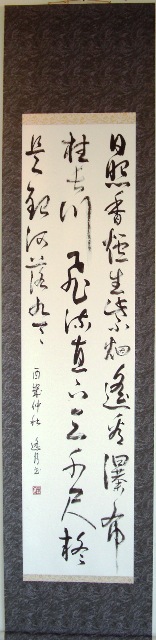 日照香爐生紫烟遙看瀑布
挂長川飛流直下三千尺疑
是銀河落九天
仲秋